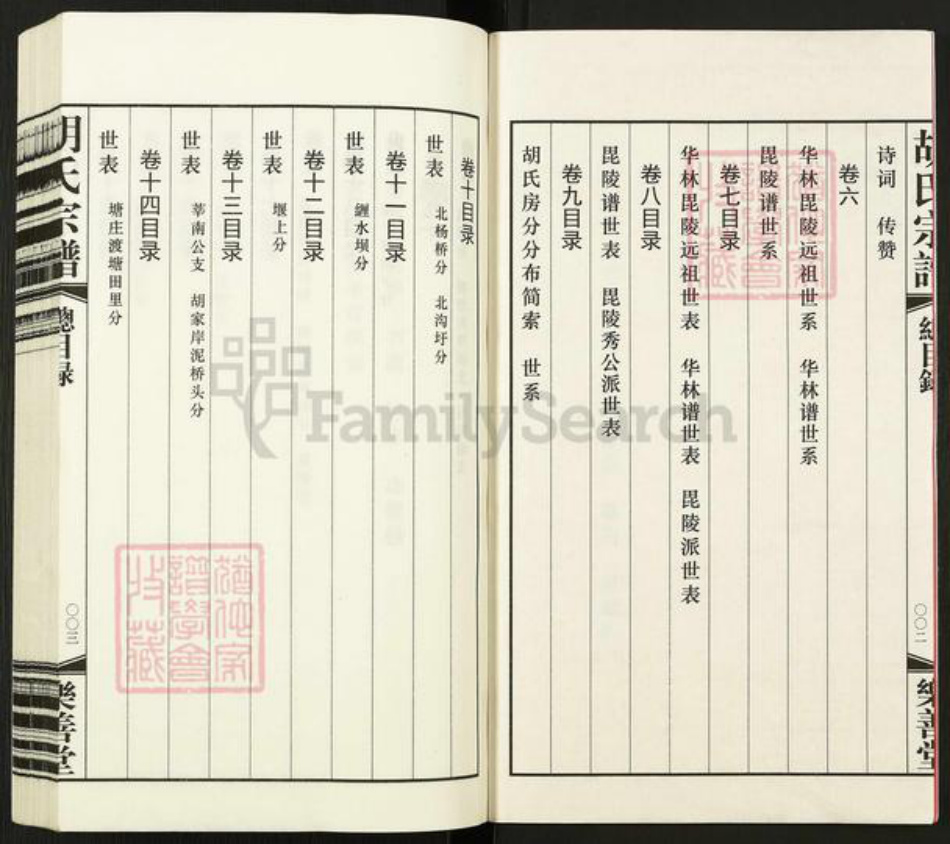 胡氏宗谱
總目録
〇〇二
樂善堂
诗词 传赞
卷六
华林毘陵远祖世系 华林谱世系
毘陵谱世系
卷七目录
华林毘陵远祖世表 华林谱世表 毘陵派世表
卷八目录
毘陵谱世表 毘陵秀公派世表
卷九目录
胡氏房分分布简索 世系
卷十目录
世表 北杨桥分 北沟圩分
卷十一目录
世表 缠水坝分
卷十二目录
世表 堰上分
卷十三目录
世表 莘南公支 胡家岸泥桥头分
卷十四目录
世表 塘庄渡塘田里分
胡氏宗譜
總目録
〇〇三
樂善堂
FamilySearch
家
譜學會
收藏